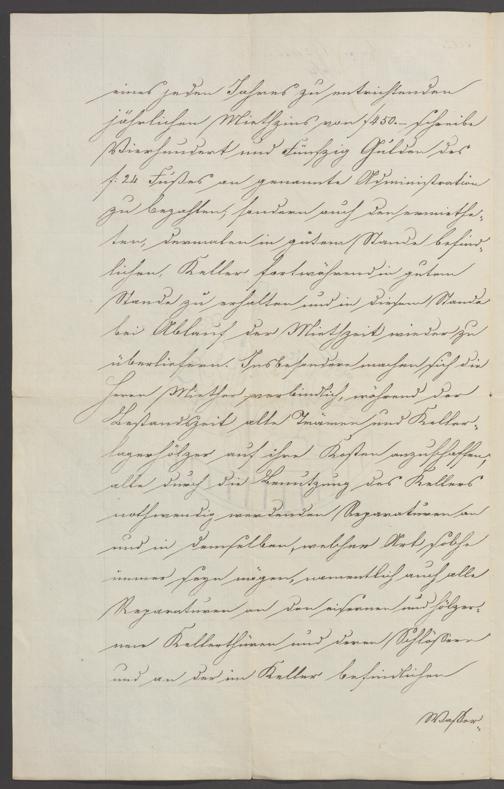 eines jeden Jahres zu entrichtenden
jährlichen Miethzins von f 450.– schreibe
Vierhundert und Fünfzig Gulden des
f: 24 Fußes an genannte Administration
zu bezahlen, sondern auch den ermiethe-
ten, dermalen in gutem Stande befind-
lichen Keller fortwährend in gutem
Stande zu erhalten und in diesem Stande
bei Ablauf der Miethzeit wieder zu
überliefern. Insbesondere machen sich die
Herrn Miether verbindlich, während der
Bestandszeit alle Trämen und Keller-
lagerhölzer auf ihre Kosten anzuschaffen,
alle durch die Benutzung des Kellers
nothwendig werdenden Reparaturen an
und in demselben, welcher Art solche
immer seyn mögen, namentlich auch alle
Reparaturen an den eisernen und hölzer-
nen Kellerthüren und deren Schlösser
und an der im Keller befindlichen
Wasser-